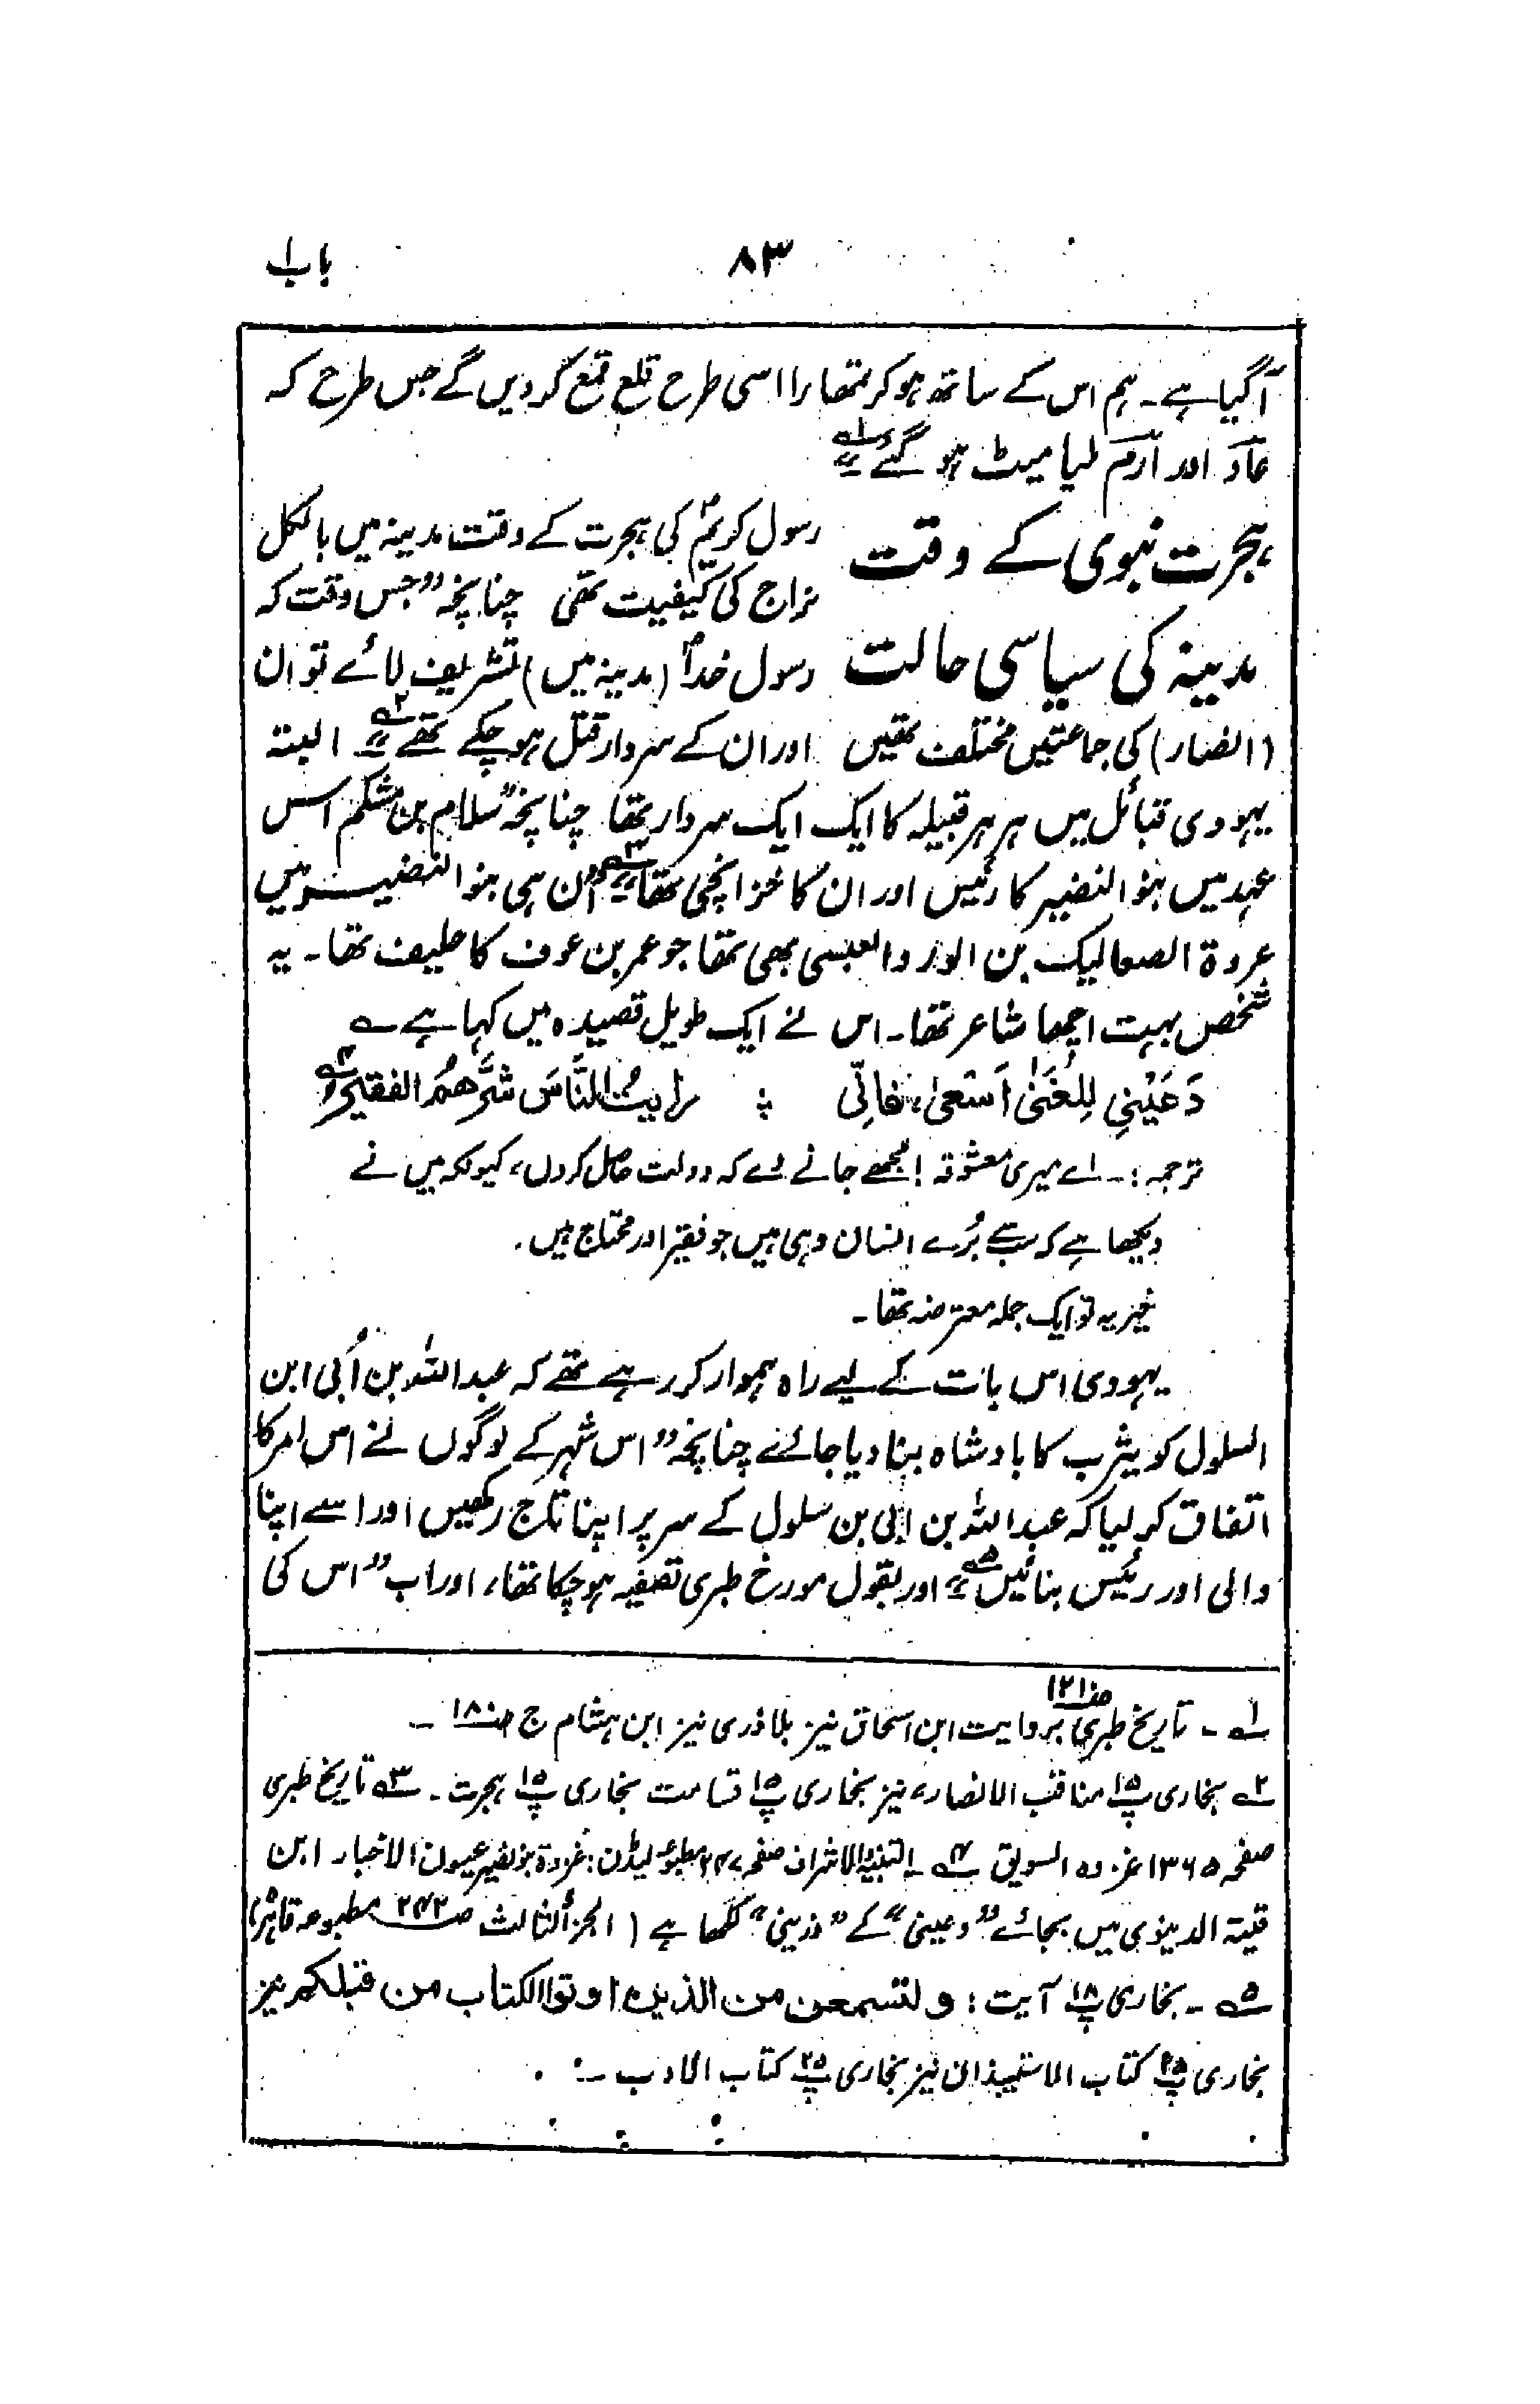 باب ۱
۸۳
آگیا ہے۔ ہم اس کے ساتھ ہو کر تمھارا اسی طرح قلع قمع کر دیں گے جس طرح کہ
عاد اور ارم ملیا میٹ ہو گئے" ۱؎
ہجرت نبوی کے وقت
مدینہ کی سیاسی حالت
رسول کریمؐ کی ہجرت کے وقت مدینہ میں بالکل
نراج کی کیفیت تھی چنانچہ "جس وقت کہ
رسول خداؐ (مدینہ میں) تشریف لائے تو ان
(انصار) کی جماعتیں مختلف تھیں اور ان کے سردار قتل ہو چکے تھے" ۲؎ البتہ
یہودی قبائل میں ہر ہر قبیلہ کا ایک ایک سردار تھا چنانچہ "سلام بن مشکم اس
عہد میں بنو النضیر کا رئیس اور ان کا خزانچی تھا" ۳؎ ان ہی بنو النضیر میں
عروة الصعالیک بن الورد العبسی بھی تھا جو عمر بن عوف کا حلیف تھا۔ یہ
شخص بہت اچھا شاعر تھا۔ اس نے ایک طویل قصیدہ میں کہا ہے ؎
دَعَیْنِی لِلغَنٰی اَسْعیٰ، فاِنّی ؛ رایتُ النَّاسَ شَرُّھُمُ الفقیرُ ۴؎
ترجمہ:۔ اے میری معشوقہ! مجھے جانے دے کہ دولت حاصل کروں، کیونکہ میں نے
دیکھا ہے کہ سب سے بُرے انسان وہی ہیں جو فقیر اور محتاج ہیں۔
خیر یہ تو ایک جملہ معترضہ تھا۔
یہودی اس بات کے لیے راہ ہموار کر رہے تھے کہ عبداللہ بن اُبی ابن
السلول کو یثرب کا بادشاہ بنا دیا جائے چنانچہ "اس شہر کے لوگوں نے اس امر کا
اتفاق کر لیا کہ عبداللہ بن ابی بن سلول کے سر پر اپنا تاج رکھیں اور اسے اپنا
والی اور رئیس بنائیں" ۵؎ اور بقول مورخ طبری تصفیہ ہو چکا تھا، اور اب "اس کی
۱؎۔ تاریخ طبری ص۱۲۱۰ بروایت ابن اسحاق نیز بلاذری نیز ابن ہشام ج ص۱۸۰۔
۲؎ بخاری پ۱۵ مناقب الانصار، نیز بخاری پ۱۵ قسامت بخاری پ۱۵ ہجرت۔ ۳؎ تاریخ طبری
صفحہ ۱۳۶۵ غزوہ السویق ۴؎۔ التنبیہ والاشراف صفحہ ۲۴۷ مطبوعہ لیڈن: غزوة بنو نضیر عیون الاخبار ابن
قیتۃ الدینوی میں بجائے "دعینی" کے "ذرینی" لکھا ہے (الجزأ الثالث ص۲۴۲ مطبوعہ قاہرہ)
۵؎۔ بخاری پ۱۸ آیت: ولتسمعن من الذین اوتوا الکتاب من قبلکم نیز
بخاری پ۲۵ کتاب الاستیذان نیز بخاری پ۲۵ کتاب الادب ۔: